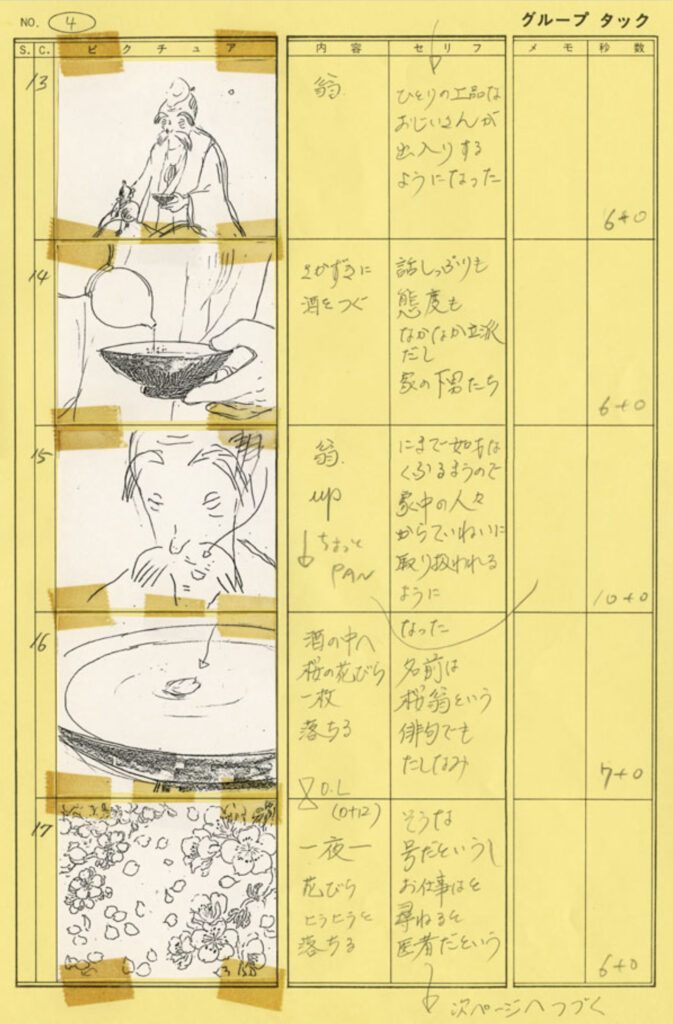 NO. 4
グループ タック
S. C. ピクチュア 内容 セリフ メモ 秒数
13
翁
ひとりの上品な
おじいさんが
出入りする
ようになった
6+0
14
さかずきに
酒をつぐ
話しっぷりも
態度も
なかなか立派
だし
家の下男たち
6+0
15
翁
up
ちょっと
PAN
にまで
くふるまうので
家中の人々
からていねいに
取り扱われる
ように
10+0
16
酒の中へ
桜の花びら
一枚
落ちる
O.L
(0+12)
なった
名前は
桜翁という
俳句でも
たしなみ
7+0
17
一夜一
花びら
ヒラヒラと
落ちる
そうな
号だというし
お仕事はと
尋ねると
医者だという
6+0
次ページへつづく